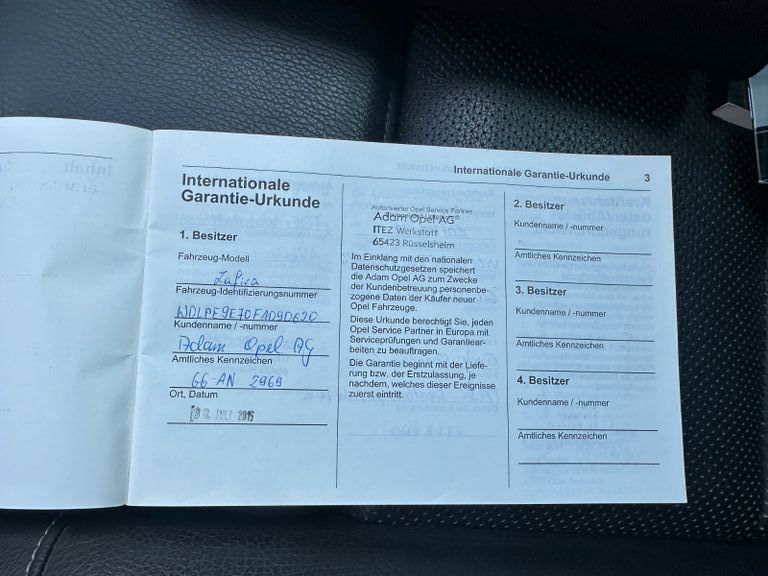 Internationale Garantie-Urkunde 3
Internationale
Garantie-Urkunde
1. Besitzer
Fahrzeug-Modell
Zafira
Fahrzeug-Identifizierungsnummer
Kundenname / -nummer
Adam Opel AG
Amtliches Kennzeichen
GG-AN 2969
Ort, Datum
JULI 2015
Autorisierter Opel Service Partner
Adam Opel AG
ITEZ Werkstatt
65423 Rüsselsheim
Im Einklang mit den nationalen
Datenschutzgesetzen speichert
die Adam Opel AG zum Zwecke
der Kundenbetreuung personenbe-
zogene Daten der Käufer neuer
Opel Fahrzeuge.
Diese Urkunde berechtigt Sie, jeden
Opel Service Partner in Europa mit
Serviceprüfungen und Garantiear-
beiten zu beauftragen.
Die Garantie beginnt mit der Liefe-
rung bzw. der Erstzulassung, je
nachdem, welches dieser Ereignisse
zuerst eintritt.
2. Besitzer
Kundenname / -nummer
Amtliches Kennzeichen
3. Besitzer
Kundenname / -nummer
Amtliches Kennzeichen
4. Besitzer
Kundenname / -nummer
Amtliches Kennzeichen